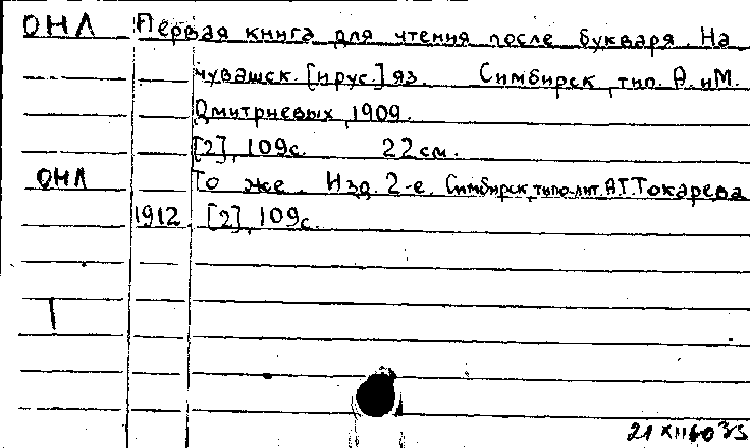 ОНЛ Первая книга для чтения после букваря. На
чувашск. [и рус.] яз. Симбирск, тип. А. и М.
Дмитриевых, 1909.
[2], 109 с. 22 см.
ОНЛ То же. Изд. 2-е. Симбирск, типо-лит. А.Т. Токарева
1912 [2], 109 с.